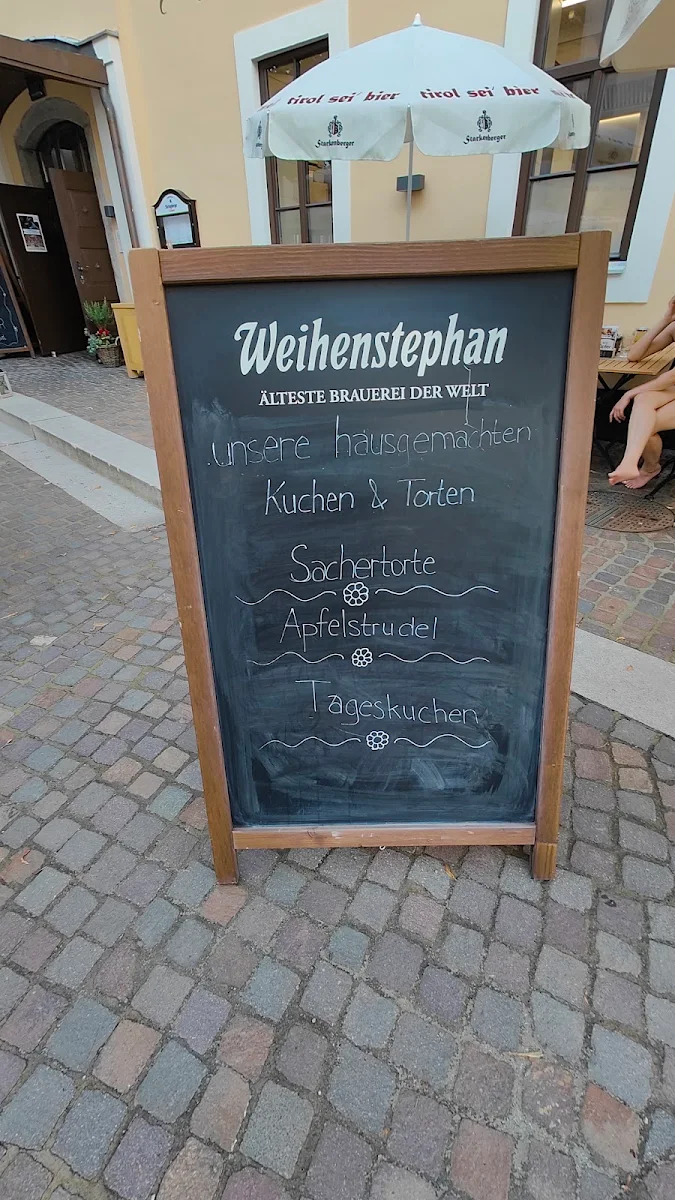 tirol sei' bier tirol sei' bier
Starkenberger Starkenberger
Weihenstephan
ÄLTESTE BRAUEREI DER WELT
unsere hausgemachten
Kuchen & Torten
Sachertorte
Apfelstrudel
Tageskuchen